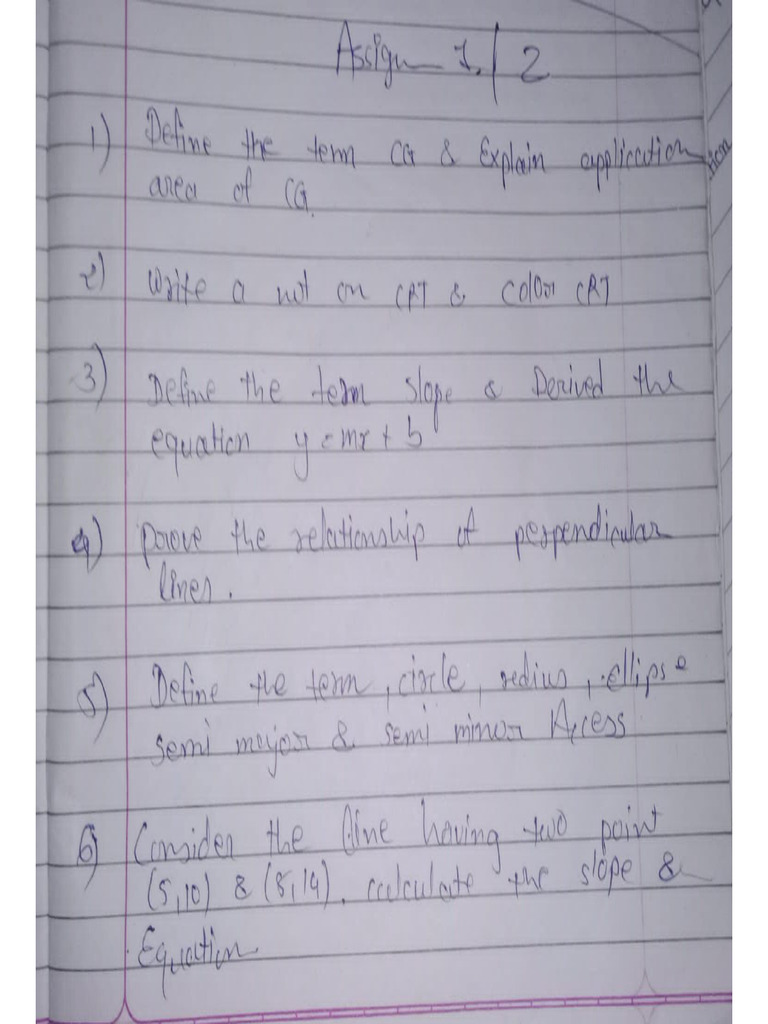 Assign 1./2
1) Define the term CG & Explain application
area of CG.
2) write a not on CRT & Color CRT
3) Define the term slope & Derived the
equation y = mx + b
4) prove the relationship of perpendicular
lines.
5) Define the term, circle, redius, ellipse
semi major & semi minor Axcess
6) Consider the line having two point
(5,10) & (8,14). calculate the slope &
Equation